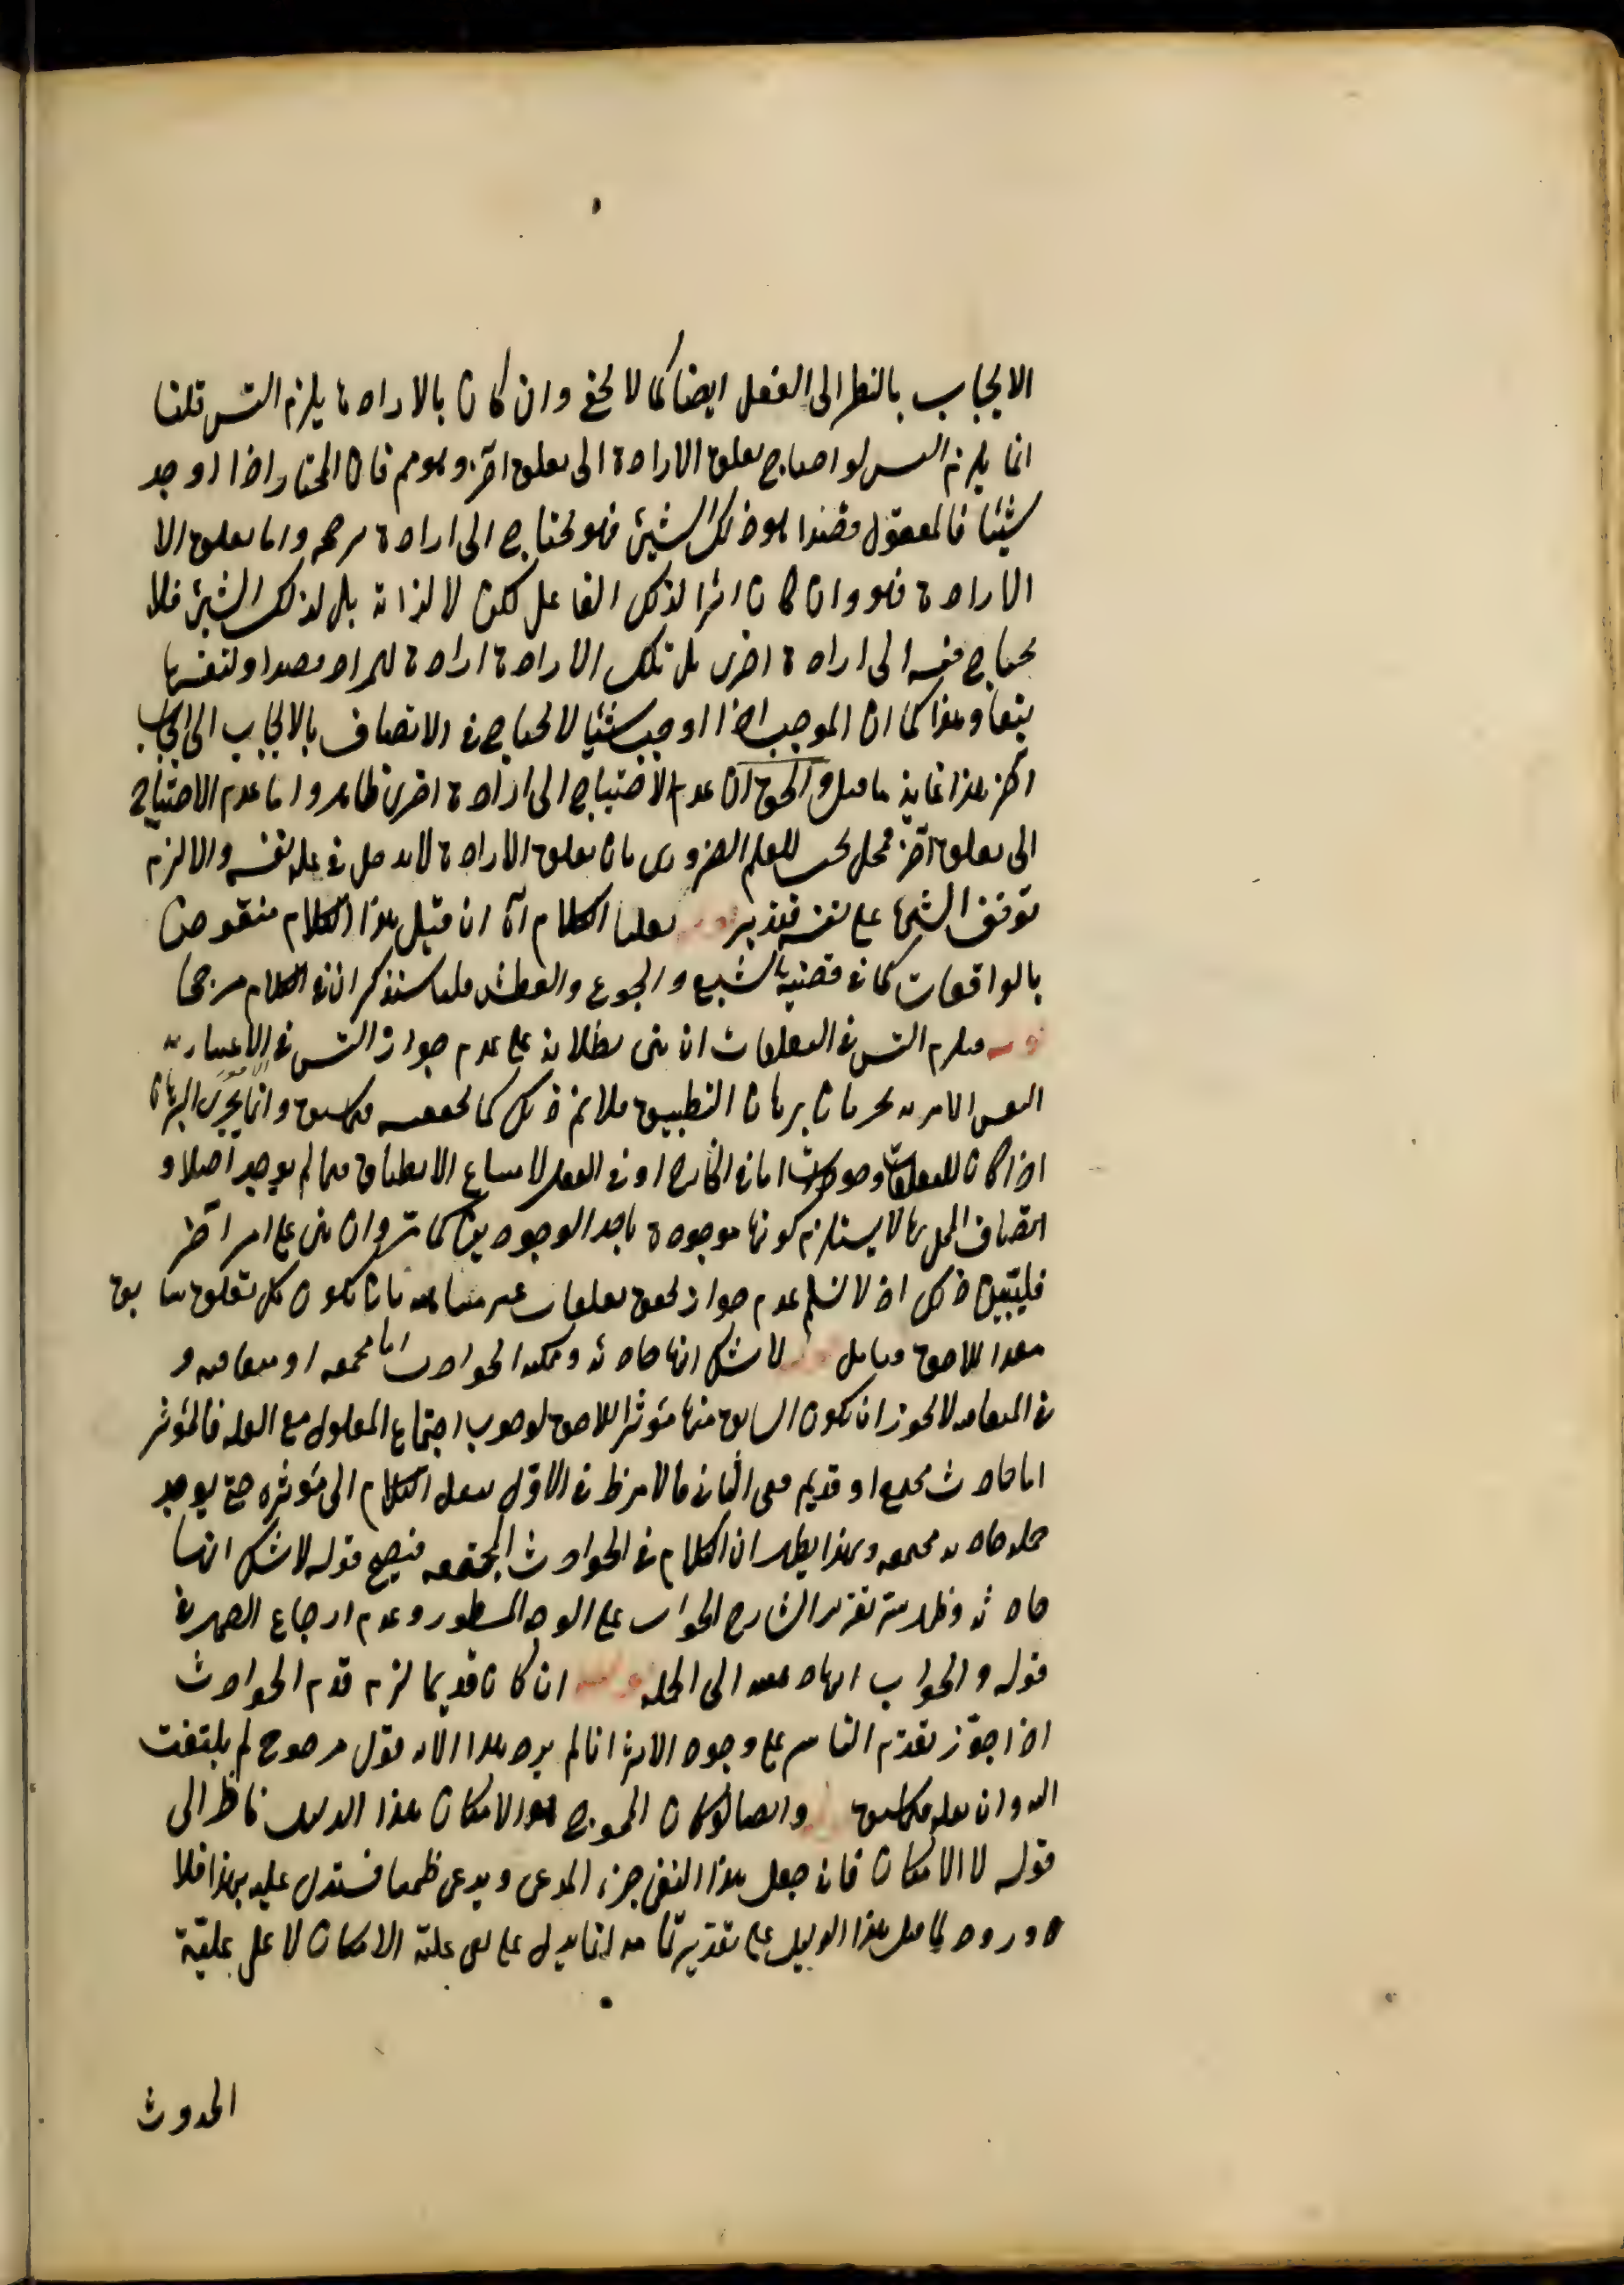 الايجاب بالنظر الى الفعل ايضا كما لا يخفى وان كان بالارادة يلزم التس قلنا
انما يلزم التس لو احتاج تعلق الارادة الى تعلق آخر وهو مم فان المختار اذا اوجد
شيئا فالمعقول قصدا هو ذلك الشيئ فهو يحتاج الى ارادة مرجحه واما تعلق الا
الارادة فهو وان كان اثرا لذلك الفاعل لكن لا لذاته بل لذلك الشيئ فلا
يحتاج فيه الى ارادة اخرى بل تلك الارادة ارادة للمراد قصدا ولنفسها
تبعا وهذا كما ان الموجب اذا اوجب شيئا لا يحتاج في الاتصاف بالايجاب الى ايجاب
آخر هذا غاية ما قيل والحق ان عدم الاحتياج الى ارادة اخرى ظاهر واما عدم الاحتياج
الى تعلق آخر فمحل بحث للعلم الضروري بان تعلق الارادة لا يدخل في علة نفسه والا لزم
توقف الشيئ على نفسه فتدبر نقلنا الكلام آه ان قيل هذا الكلام منقوض
بالواقعات كما في قضية الشبع والجوع والعطش قلنا سنذكر ان في الكلام مرجحا
فيلزم التس في التعلقات ان بنى بطلانه على عدم جواز التس في الامور الاعتبارية
النفس الامرية بجريان برهان التطبيق فلا يتم ذلك كما تحققته فيما سبق وانما يجرى البرهان
اذا كان للتعلقات وجودات اما في الخارج او في العقل لامتناع الانطباق فيما لم يوجد اصلا و
اتصاف المحل بها لا يستلزم كونها موجودة باحد الوجودين كما مر وان بنى على امر آخر
فليتبين ذلك اذ لا نسلم عدم جواز تحقق تعلقات غير متناهية بان يكون كل تعلق سابق
معدا للاحق وتأمل لا شك انها حادثة وتلك الحوادث اما مجتمعه او متعاقبه و
في المتعاقبه لا يجوز ان يكون السابق منها مؤثرا للاحق لوجوب اجتماع المعلول مع العله فالمؤثر
اما حادث مجتمع او قديم فعلى الثاني فالامر ظ وفي الاول ننقل الكلام الى مؤثره حتى يوجد
جملة حادثة مجتمعه وبهذا يظهر ان الكلام في الحوادث المجتمعه فيصح قوله لا شك انها
حادثة وظهر سر تقرير الشارح الجواب على الوجه المسطور وعدم ارجاع الضمير في
قوله والجواب الى الجملة ان كان قديما لزم قدم الحوادث
اذا جوز تقدم التأثير على وجود الاثر انما لم يرد هذا لانه قول مرجوح لم يلتفت
اليه وان نقله فيما سبق وايضا لو كان المحوج هو الامكان هذا الدليل ناظر الى
قوله لا الامكان فان جعل هذا النفي جزء المدعى ويدعى ضمنا فنستدل عليه بهذا فلا
ورود لما قيل هذا الدليل على تقدير تمامه انما يدل على نفى علية الامكان لا على علية
الحدوث